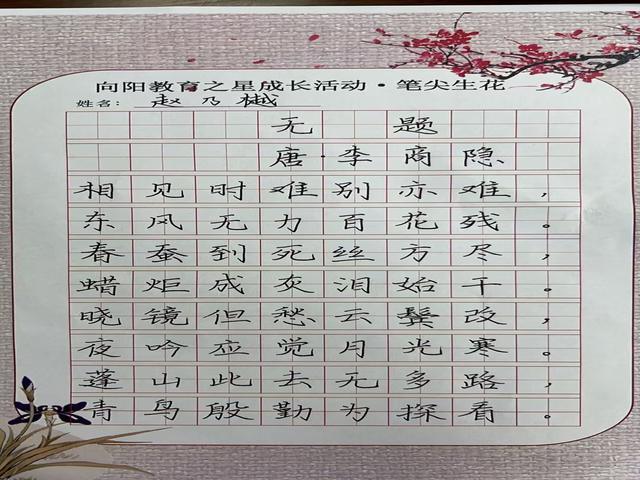 向阳教育之星成长活动·笔尖生花
姓名：赵乃樾
无题
唐·李商隐
相见时难别亦难，
东风无力百花残。
春蚕到死丝方尽，
蜡炬成灰泪始干。
晓镜但愁云鬓改，
夜吟应觉月光寒。
蓬山此去无多路，
青鸟殷勤为探看。